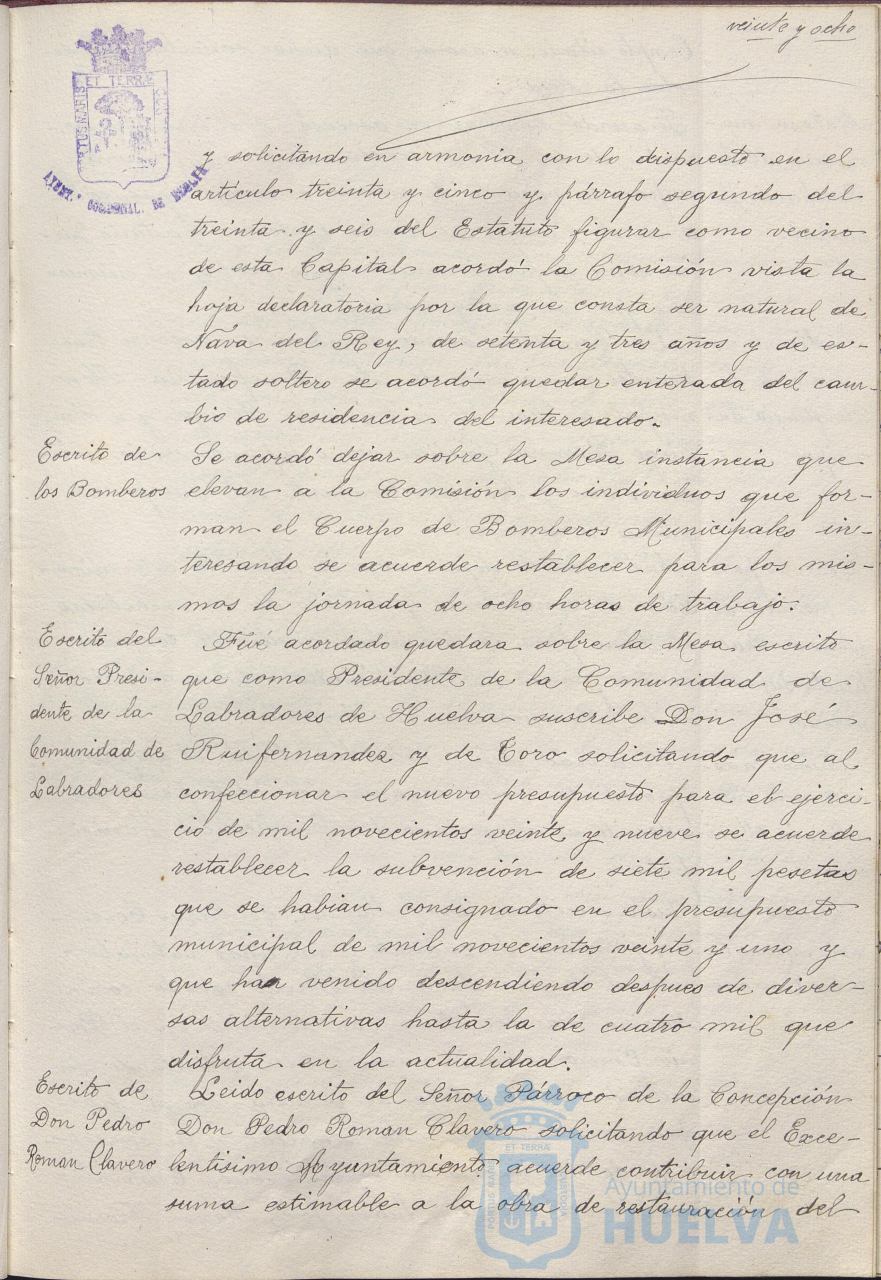 veinte y ocho
ET TERRA
AYUNT.º CONSTITUCIONAL. DE HUELVA
y solicitando en armonia con lo dispuesto en el
artículo treinta y cinco y párrafo segundo del
treinta y seis del Estatuto figurar como vecino
de esta Capital acordó la Comisión vista la
hoja declaratoria por la que consta ser natural de
Nava del Rey, de setenta y tres años y de es-
tado soltero se acordó quedar enterada del cam-
bio de residencia del interesado.
Escrito de
los Bomberos
Se acordó dejar sobre la Mesa instancia que
elevan a la Comisión los individuos que for-
man el Cuerpo de Bomberos Municipales in-
teresando se acuerde restablecer para los mis-
mos la jornada de ocho horas de trabajo.
Escrito del
Señor Presi-
dente de la
Comunidad de
Labradores
Fué acordado quedara sobre la Mesa escrito
que como Presidente de la Comunidad de
Labradores de Huelva suscribe Don José
Ruifernandez y de Toro solicitando que al
confeccionar el nuevo presupuesto para el ejerci-
cio de mil novecientos veinte y nueve se acuerde
restablecer la subvención de siete mil pesetas
que se habian consignado en el presupuesto
municipal de mil novecientos veinte y uno y
que han venido descendiendo despues de diver-
sas alternativas hasta la de cuatro mil que
disfruta en la actualidad.
Escrito de
Don Pedro
Roman Clavero
Leido escrito del Señor Párroco de la Concepción
Don Pedro Roman Clavero solicitando que el Exce-
lentisimo Ayuntamiento acuerde contribuir con una
suma estimable a la obra de restauración del
ET TERRA
Ayuntamiento de
HUELVA